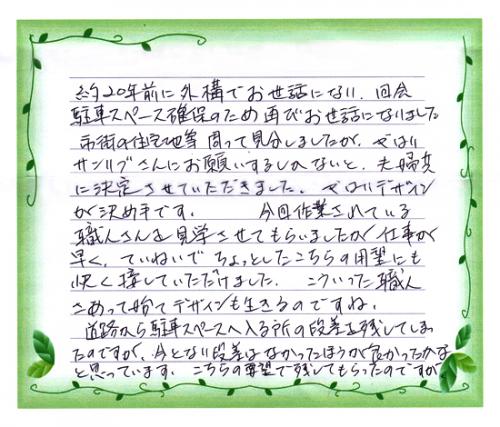 約20年前に外構でお世話になり、回会
駐車スペース確保のため再びお世話になりました
市街の住宅地等 周って見分しましたが、やはり
サンリブさんにお願いするしかないと、夫婦共
に決定させていただきました。やはりデザイン
が決め手です。 今回作業されている
職人さんを見学させてもらいましたが仕事が
早く、ていねいでちょっとしたこちらの用望にも
快く接していただけました。こういった職人
さあって始てデザインも生きるのですね。
道路から駐車スペースへ入る所の段差を残してしまっ
たのですが、今となり段差はなかったほうが良かったかな
と思っています。こちらの要望で残してもらったのですが